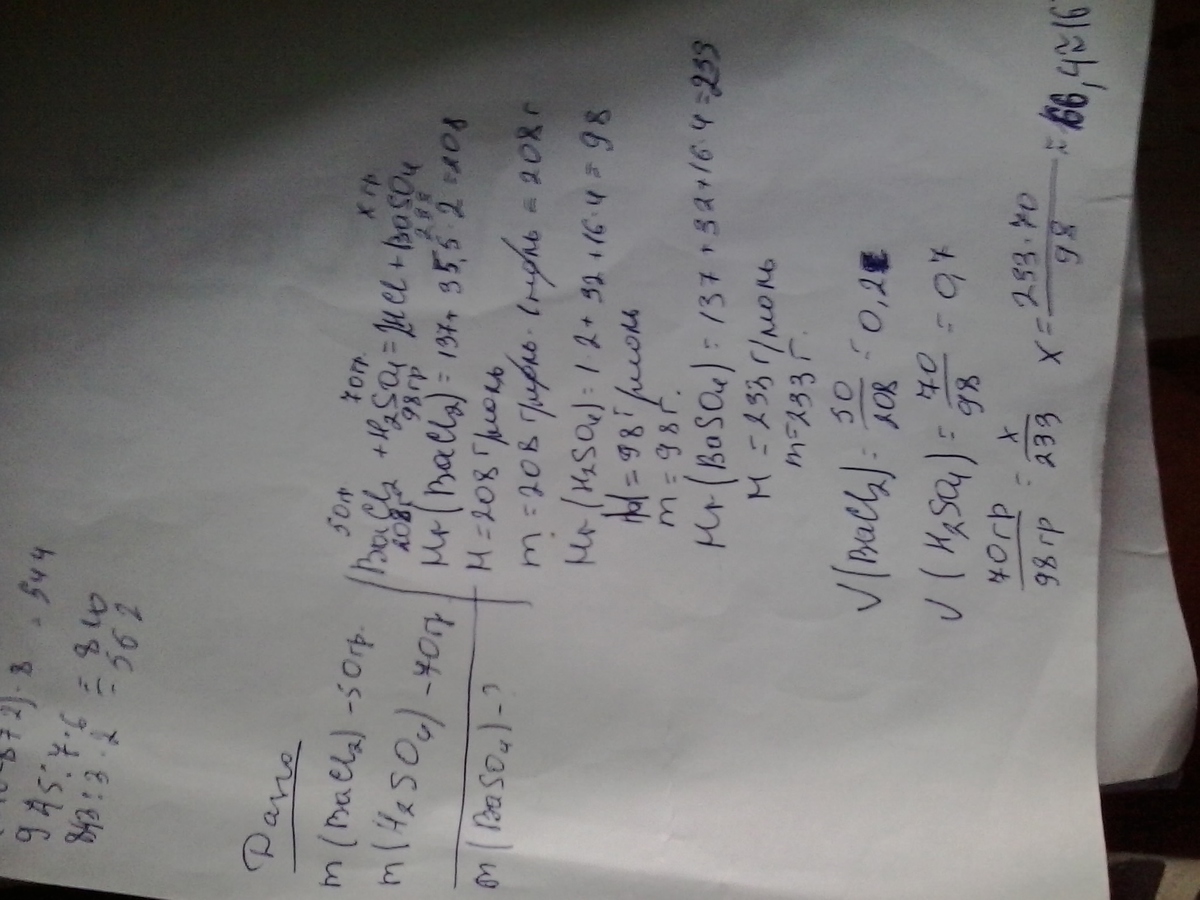 945:7·6 = 810
843:3·2 = 562
Дано
m(BaCl2) – 50гр.
m(H2SO4) – 70гр
m(BaSO4) – ?
50гр 70гр. x гр
BaCl2 + H2SO4 = 2HCl + BaSO4
208г 98гр 233
Mr(BaCl2) = 137+35,5·2=208
M = 208 г/моль
m = 208 г/моль · 1моль = 208 г
Mr(H2SO4) = 1·2+32+16·4 = 98
M = 98 г/моль
m = 98 г.
Mr(BaSO4) = 137+32+16·4=233
M = 233 г/моль
m=233 г.
V(BaCl2) = 50/208 = 0,2
V(H2SO4) = 70/98 = 0,7
70гр/98гр = x/233 x = 233·70/98 ≈ 166,4≈16